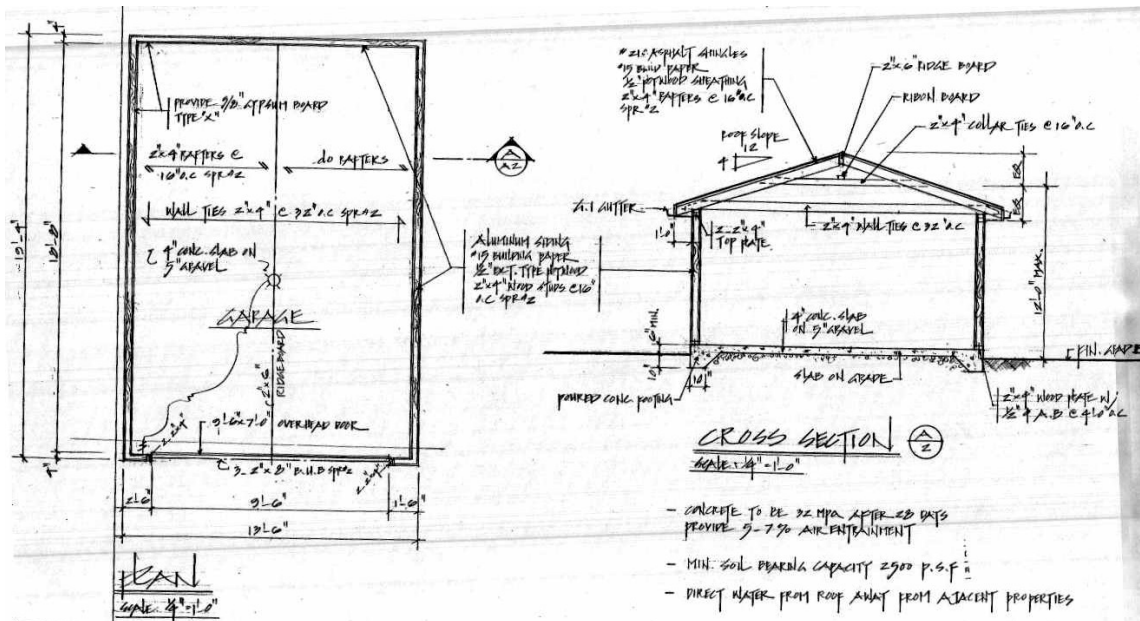 4"
19'-4"
18'-8"
4"
PROVIDE 5/8" GYPSUM BOARD
TYPE "X"
2"x4" RAFTERS @
16" O.C SPR #2
do RAFTERS
WALL TIES 2"x4" @ 32" O.C SPR #2
4" CONC. SLAB ON
5" GRAVEL
GARAGE
2"x6"
RIDGE BOARD
9'-6"x7'-0" OVERHEAD DOOR
3-2"x8" B.H.B SPR #2
2'-6"
9'-6"
1'-6"
13'-6"
PLAN
SCALE: 1/4"=1'-0"
A
A2
ALUMINUM SIDING
#15 BUILDING PAPER
1/2" EXT. TYPE PLYWOOD
2"x4" WOOD STUDS @ 16"
O.C SPR #2
# 210 ASPHALT SHINGLES
#15 BUILD PAPER
1/2" PLYWOOD SHEATHING
2"x4" RAFTERS @ 16" O.C
SPR #2
2"x6" RIDGE BOARD
RIBON BOARD
2"x4" COLLAR TIES @ 16" O.C
ROOF SLOPE
12
4
EQ
EQ
G.I GUTTER
1'-0"
2-2"x4"
TOP PLATE
2"x4" WALL TIES @ 32" O.C
12'-0" MAX.
6" MIN.
4" CONC. SLAB
ON 5" GRAVEL
FIN. GRADE
10"
10"
SLAB ON GRADE
POURED CONC. FOOTING
2"x4" WOOD PLATE W/
1/2" φ A.B @ 4'-0" O.C
CROSS SECTION
A
2
SCALE: 1/4"=1'-0"
- CONCRETE TO BE 32 MPA AFTER 28 DAYS
PROVIDE 5-7% AIR ENTRAINMENT
- MIN. SOIL BEARING CAPACITY 2500 P.S.F
- DIRECT WATER FROM ROOF AWAY FROM ADJACENT PROPERTIES